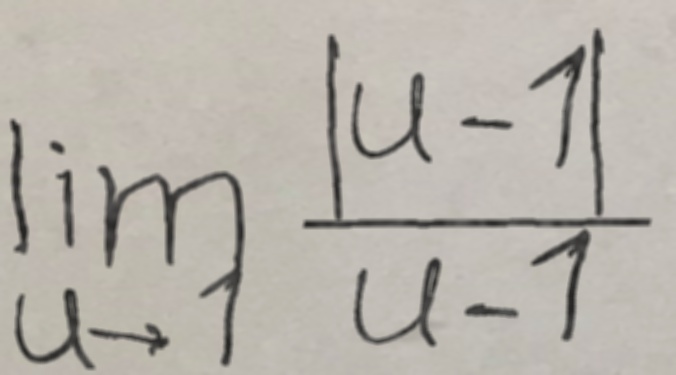 lim |u-1|
u→1 u-1